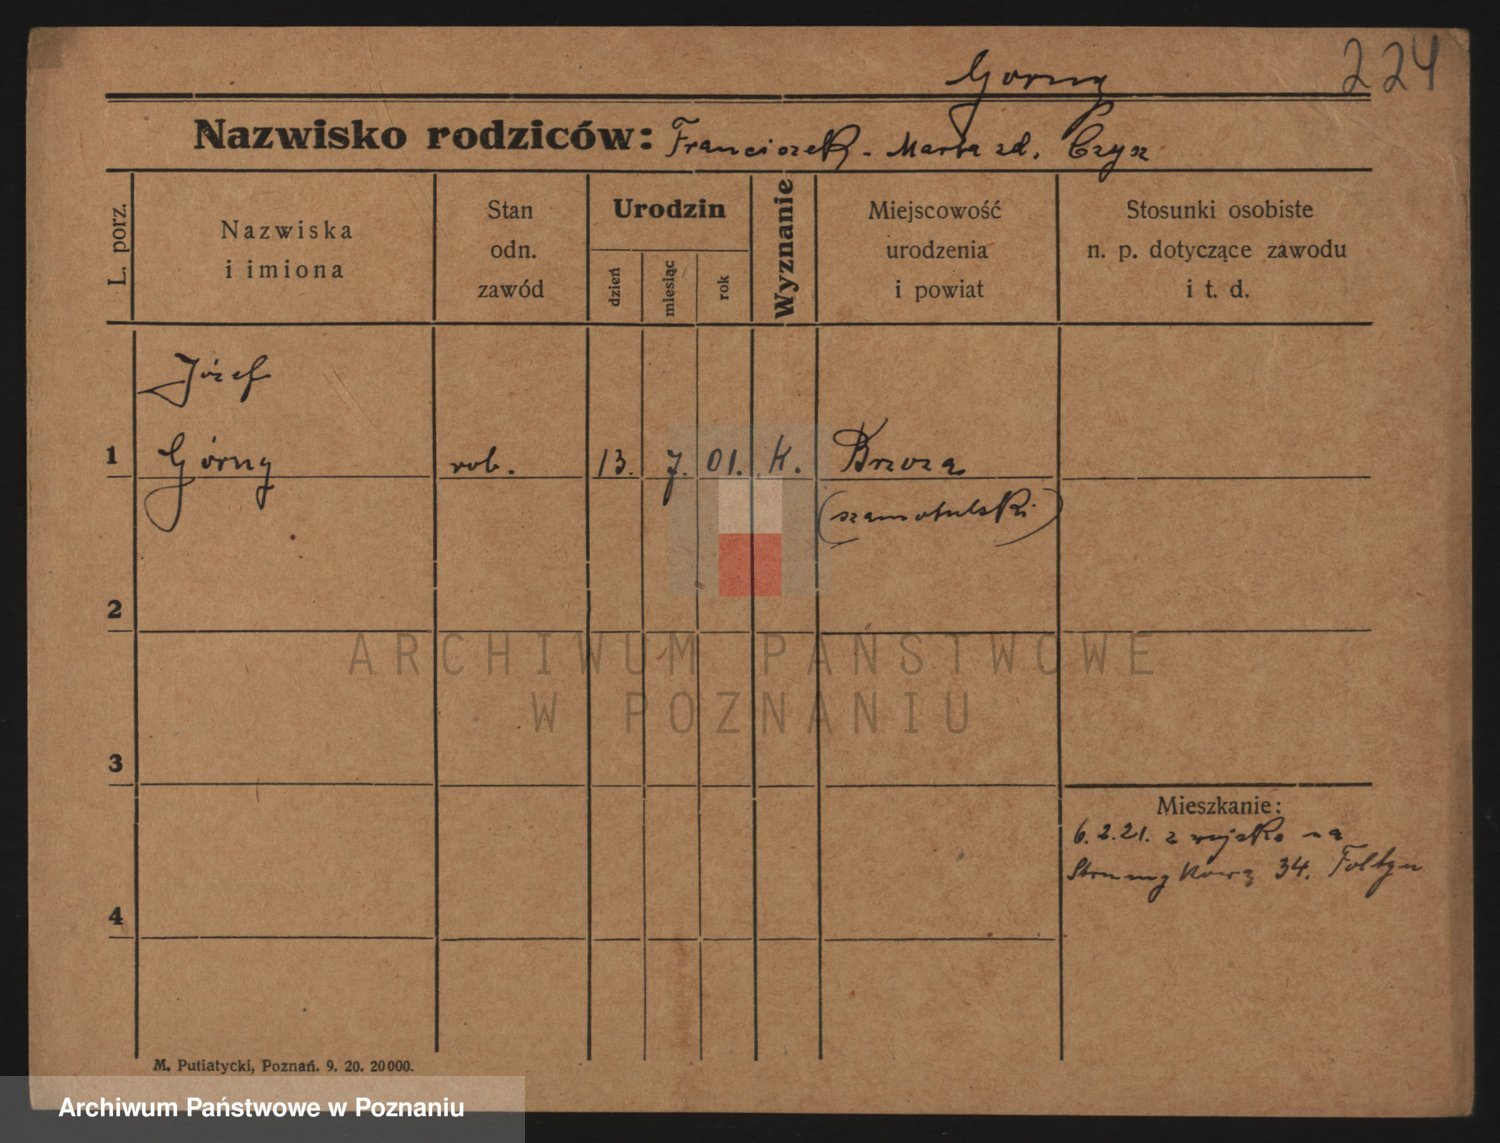 224
Gorny
Nazwisko rodziców: Franciszek - Marta zd. Czysz
L. porz.
Nazwiska
i imiona
Stan
odn.
zawód
Urodzin
dzień
miesiąc
rok
Wyznanie
Miejscowość
urodzenia
i powiat
Stosunki osobiste
n. p. dotyczące zawodu
i t. d.
Józef
1 Górny rob. 13. 7. 01. K. Brzoza
(szamotulski)
2
3
4
Mieszkanie:
6.2.21. z wojska na
Strumykową 34.
M. Putiatycki, Poznań. 9. 20. 20000.
ARCHIWUM PAŃSTWOWE
W POZNANIU
Archiwum Państwowe w Poznaniu